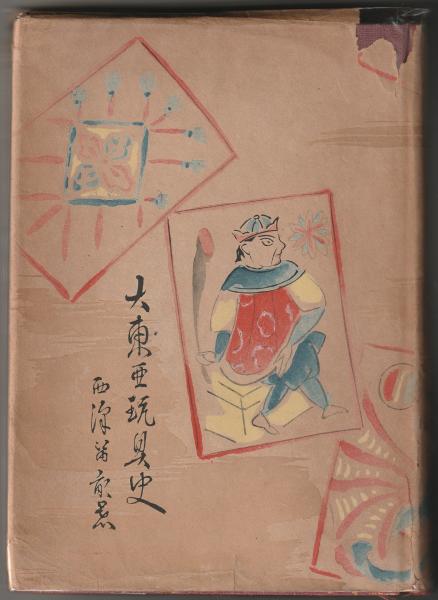 大東亜玩具史
西澤笛畝著